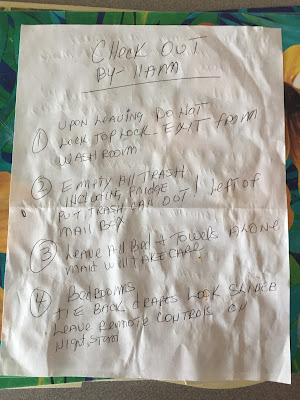 CHECK OUT
BY- 11AM
① UPON LEAVING DO NOT
LOCK TOP LOCK - EXIT FROM
WASHROOM
② EMPTY All TRASH
INCLUDING FRIDGE
PUT TRASH CAN OUT / LEFT OF
MAIL BOX
③ LEAVE All BED + TOWELS ALONE
MAID WILL TAKE CARE
④ BEDROOMS
TIE BACK DRAPES LOCK SLIDER
LEAVE REMOTE CONTROLS ON
NIGHT STAND